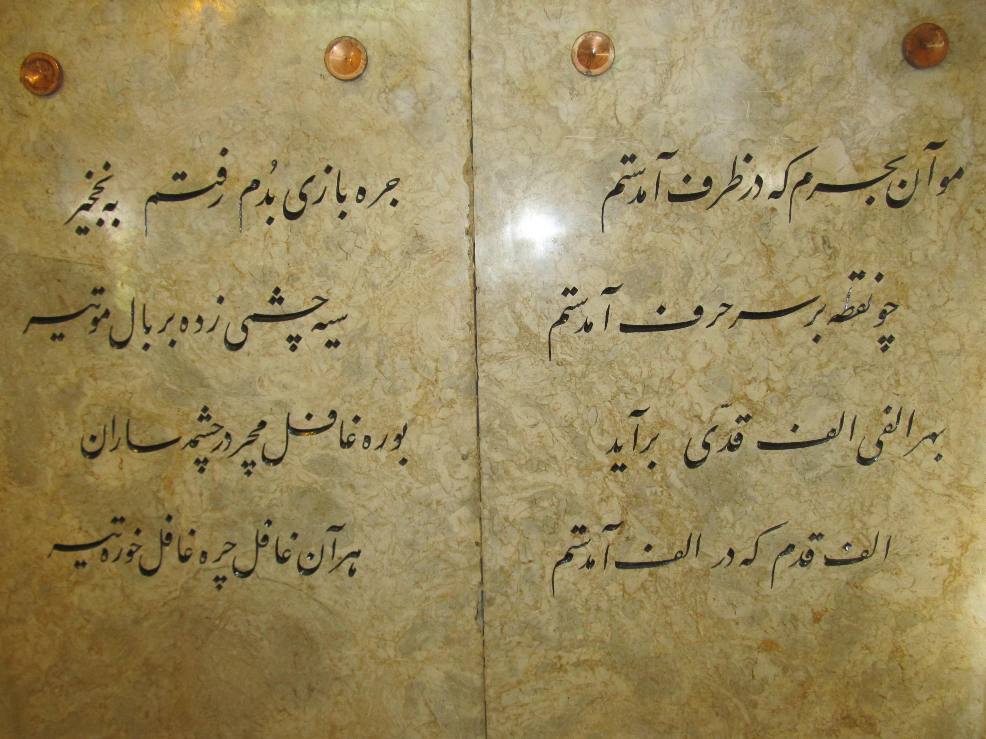 مو آن بحرم که در ظرف آمدستم
چو نقطه بر سر حرف آمدستم
بهر الفی الف قدّی برآید
الف قدم که در الف آمدستم
جره بازی بُدم رفتم به نخجیر
سیه چشمی زده بر بال مو تیر
بوره غافل مچر در چشمه ساران
هر آن غافل چره غافل خوره تیر